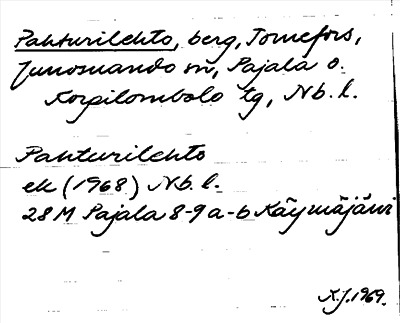 Pahturilehto, berg, Tornefors,
Junosuando sn, Pajala o.
Korpilombolo tg, Nb. l.
Pahturilehto
ek (1968) Nb. l.
28M Pajala 8-9 a-b Käymäjärvi
K.J. 1969.